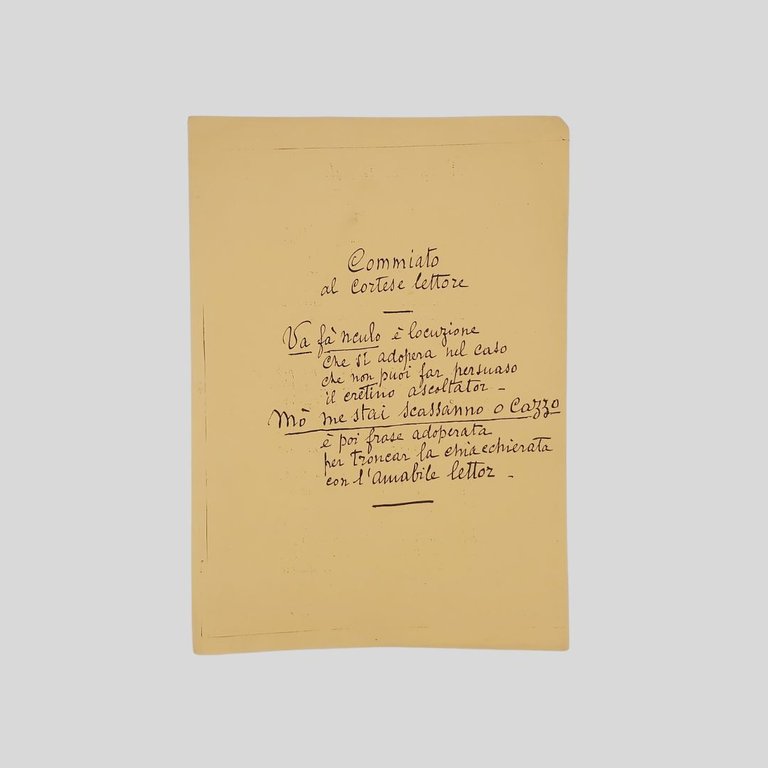 Commiato
al cortese lettore
Va fà nculo è locuzione
che si adopera nel caso
che non puoi far persuaso
il cretino ascoltator -
Mò me stai scassànno o Cazzo
è poi frase adoperata
per troncar la chiacchierata
con l'amabile lettor -